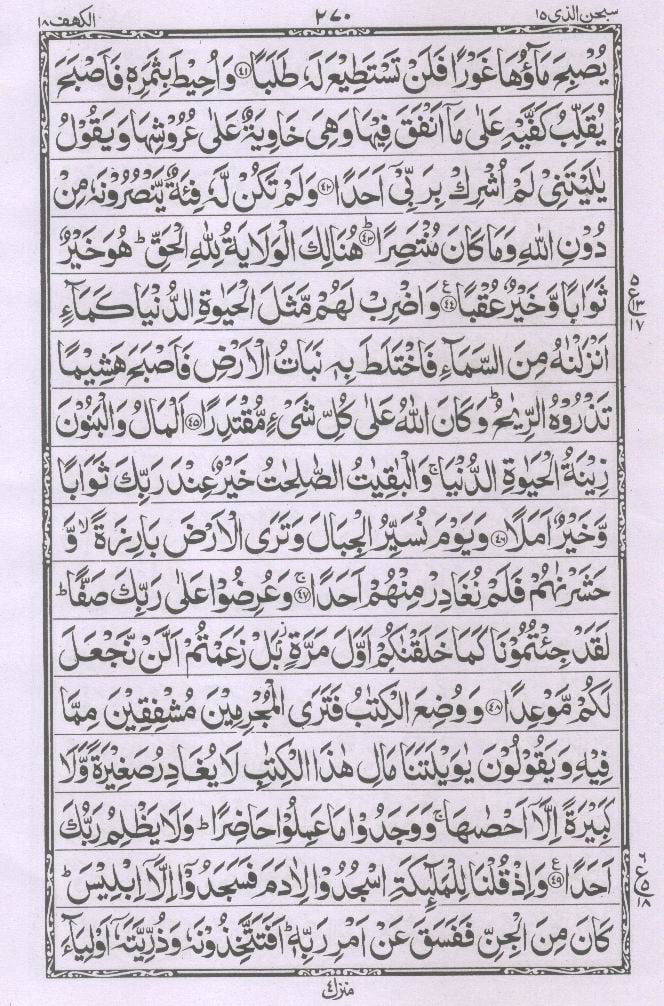 سبحن الذی ۱۵ ۲۷۰ الكهف ۱۸
يُصْبِحَ مَآؤُهَا غَوْرًا فَلَنْ تَسْتَطِيْعَ لَهٗ طَلَبًا ﴿۴۱﴾ وَاُحِيْطَ بِثَمَرِهٖ فَاَصْبَحَ
يُقَلِّبُ كَفَّيْهِ عَلٰى مَآ اَنْفَقَ فِيْهَا وَهِيَ خَاوِيَةٌ عَلٰى عُرُوْشِهَا وَيَقُوْلُ
يٰلَيْتَنِيْ لَمْ اُشْرِكْ بِرَبِّيْٓ اَحَدًا ﴿۴۲﴾ وَلَمْ تَكُنْ لَّهٗ فِئَةٌ يَّنْصُرُوْنَهٗ مِنْ
دُوْنِ اللّٰهِ وَمَا كَانَ مُنْتَصِرًا ﴿۴۳﴾ؕ هُنَالِكَ الْوَلَايَةُ لِلّٰهِ الْحَقِّ ؕ هُوَ خَيْرٌ
ثَوَابًا وَّخَيْرٌ عُقْبًا ﴿۴۴﴾ۧ وَاضْرِبْ لَهُمْ مَّثَلَ الْحَيٰوةِ الدُّنْيَا كَمَآءٍ
۵ ع ۱۳ ۱۷
اَنْزَلْنٰهُ مِنَ السَّمَآءِ فَاخْتَلَطَ بِهٖ نَبَاتُ الْاَرْضِ فَاَصْبَحَ هَشِيْمًا
تَذْرُوْهُ الرِّيٰحُ ؕ وَكَانَ اللّٰهُ عَلٰى كُلِّ شَيْءٍ مُّقْتَدِرًا ﴿۴۵﴾ اَلْمَالُ وَالْبَنُوْنَ
زِيْنَةُ الْحَيٰوةِ الدُّنْيَا ۚ وَالْبٰقِيٰتُ الصّٰلِحٰتُ خَيْرٌ عِنْدَ رَبِّكَ ثَوَابًا
وَّخَيْرٌ اَمَلًا ﴿۴۶﴾ وَيَوْمَ نُسَيِّرُ الْجِبَالَ وَتَرَى الْاَرْضَ بَارِزَةً ۙ وَّ
حَشَرْنٰهُمْ فَلَمْ نُغَادِرْ مِنْهُمْ اَحَدًا ﴿۴۷﴾ۚ وَعُرِضُوْا عَلٰى رَبِّكَ صَفًّا ؕ
لَقَدْ جِئْتُمُوْنَا كَمَا خَلَقْنٰكُمْ اَوَّلَ مَرَّةٍ ؗ بَلْ زَعَمْتُمْ اَلَّنْ نَّجْعَلَ
لَكُمْ مَّوْعِدًا ﴿۴۸﴾ وَوُضِعَ الْكِتٰبُ فَتَرَى الْمُجْرِمِيْنَ مُشْفِقِيْنَ مِمَّا
فِيْهِ وَيَقُوْلُوْنَ يٰوَيْلَتَنَا مَالِ هٰذَا الْكِتٰبِ لَا يُغَادِرُ صَغِيْرَةً وَّلَا
كَبِيْرَةً اِلَّآ اَحْصٰىهَا ۚ وَوَجَدُوْا مَا عَمِلُوْا حَاضِرًا ؕ وَلَا يَظْلِمُ رَبُّكَ
اَحَدًا ﴿۴۹﴾ۧ وَاِذْ قُلْنَا لِلْمَلٰٓئِكَةِ اسْجُدُوْا لِاٰدَمَ فَسَجَدُوْٓا اِلَّآ اِبْلِيْسَ ؕ
۶ ع ۵ ۱۸
كَانَ مِنَ الْجِنِّ فَفَسَقَ عَنْ اَمْرِ رَبِّهٖ ؕ اَفَتَتَّخِذُوْنَهٗ وَذُرِّيَّتَهٗٓ اَوْلِيَآءَ
منزل ۴